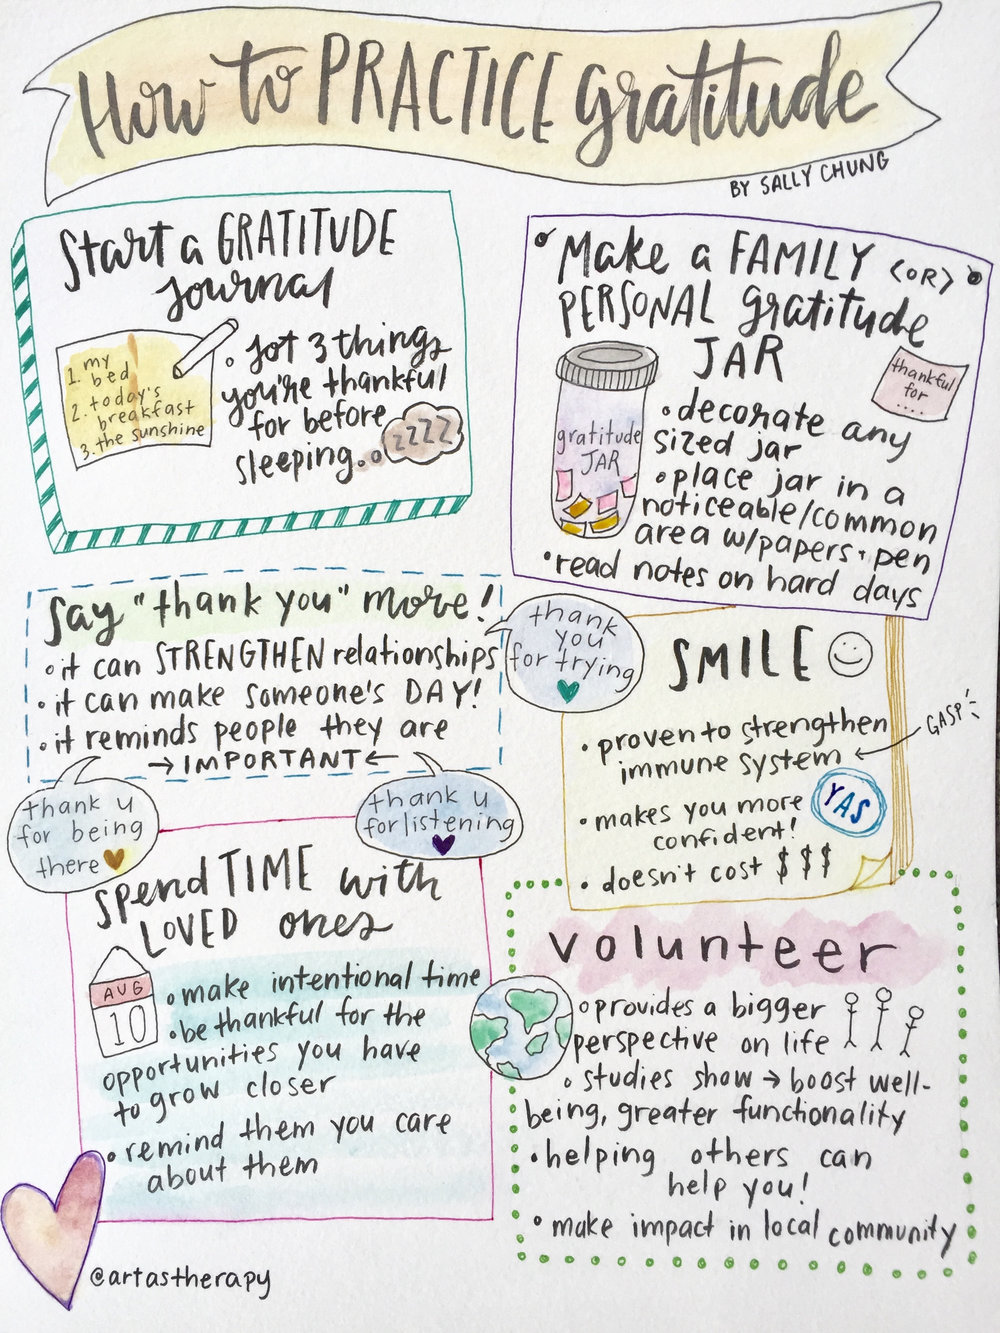 How to PRACTICE gratitude
BY SALLY CHUNG
Start a GRATITUDE
journal
1. my
bed
2. today's
breakfast
3. the sunshine
• Jot 3 things
you're thankful
for before
sleeping..
zzzz
Make a FAMILY <OR>
PERSONAL gratitude
JAR
thankful
for
....
gratitude
JAR
• decorate any
sized jar
• place jar in a
noticeable/common
area w/papers + pen
• read notes on hard days
Say "thank you" more!
• it can STRENGTHEN relationships
• it can make someone's DAY!
• it reminds people they are
→ IMPORTANT ←
thank
you
for trying
thank u
for being
there
thank u
for listening
SMILE
• proven to strengthen
immune system
GASP
• makes you more
confident!
YAS
• doesn't cost $$$
spend TIME with
LOVED ones
AUG
10
• make intentional time
• be thankful for the
opportunities you have
to grow closer
• remind them you care
about them
volunteer
• provides a bigger
perspective on life
• studies show → boost well-
being, greater functionality
• helping others can
help you!
• make impact in local community
@artastherapy